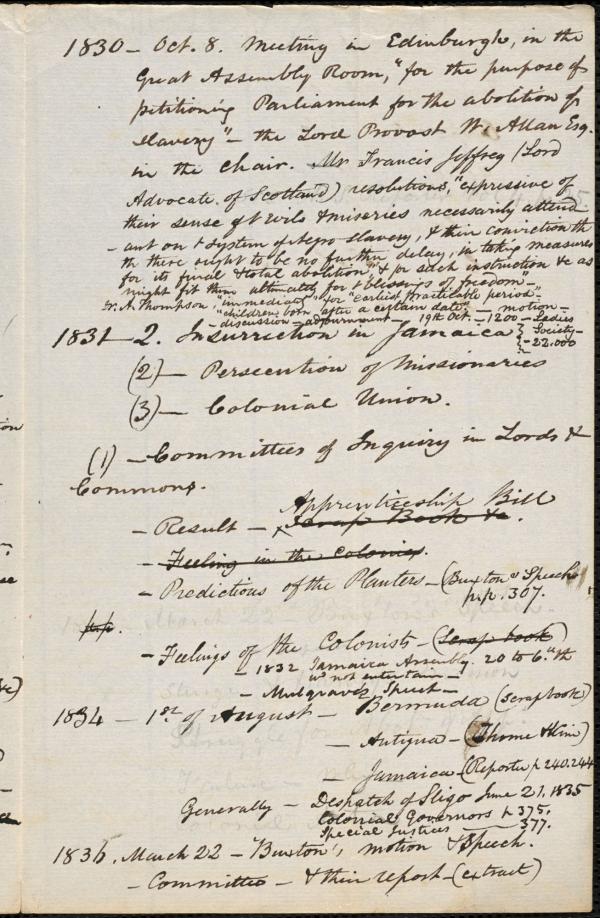 1830 — Oct. 8. Meeting in Edinburgh, in the
Great Assembly Room, "for the purpose of
petitioning Parliament for the abolition of
slavery" — the Lord Provost W. Allan Esq.
in the chair. Mr Francis Jeffrey (Lord
Advocate of Scotland) resolutions, "expressive of
their sense of evils & miseries necessarily attend
- ant on system of Negro slavery, & their conviction th
th there ought to be no further delay, in taking measures
for its final & total abolition," & for such instruction &c as
might fit them ultimately for blessings of freedom" —
A. Thompson "immediate" for "earliest practicable period" —
"children born after a certain date" — motion —
- discussion — adjournment — 19th Oct. — 1200 — Ladies
Society —
22.000
1831 — 2. Insurrection in Jamaica
(2) — Persecution of Missionaries
(3) — Colonial Union.
(1) — Committees of Inquiry in Lords &
Commons.
Apprenticeship Bill
- Result — Scrap Book &c.
- Feeling in the Colonies.
- Predictions of the Planters — (Buxton's Speech
p.p. 307.
p.p.
- Feelings of the Colonists — (Scrap book)
- 1832 Jamaica Assembly. 20 to 6. "th
w not entertain —
- Mulgrave's Speech —
1834 — 1st of August — Bermuda (Scrapbook)
- Antigua — (Thome & Kim)
- Jamaica — (Reporter p 240.244
Generally — Despatch of Sligo June 21. 1835
Colonial Governors p 375.
Special Justices — 377.
1836. March 22 — Buxton's motion & Speech.
- Committee — & their report — (extract)